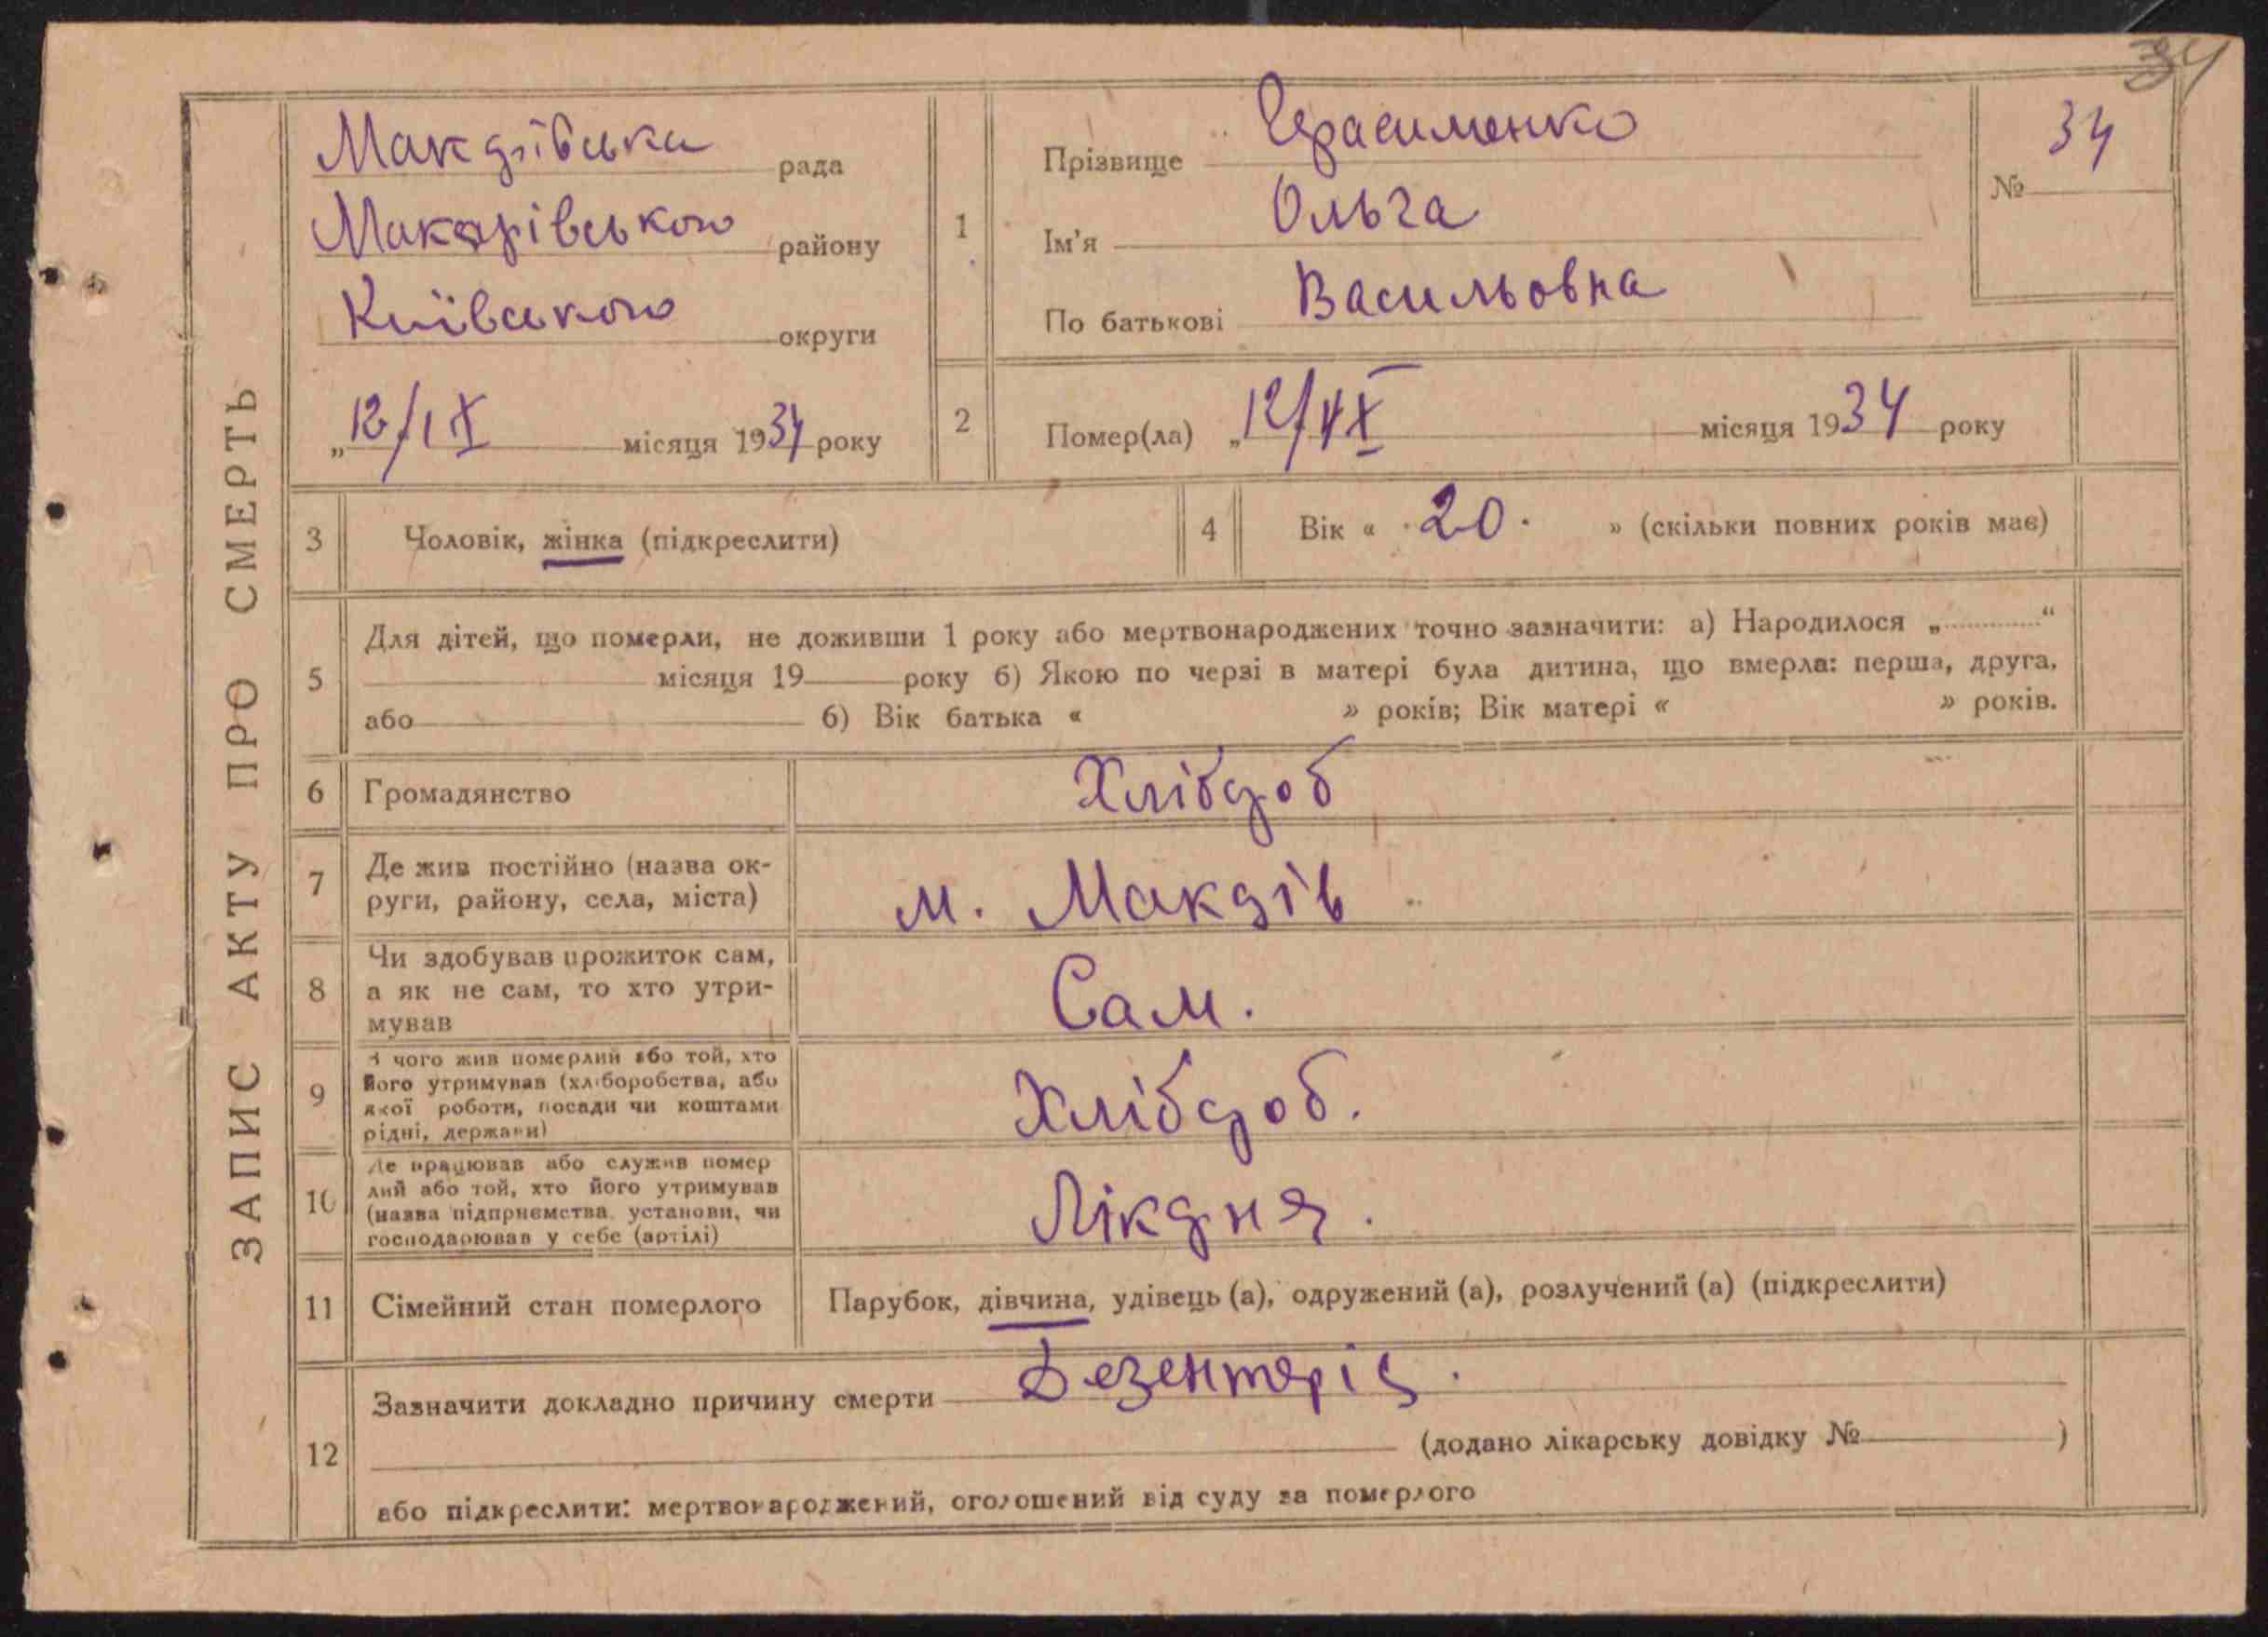 34
ЗАПИС АКТУ ПРО СМЕРТЬ
Макарівська рада
Макарівського району
Київського округи
„12/IX місяця 1934 року
1
Прізвище Герасименко
Ім'я Ольга
По батькові Васильовна
№ 34
2
Помер(ла) „12/IX місяця 1934 року
3
Чоловік, жінка (підкреслити)
4
Вік « 20 » (скільки повних років має)
5
Для дітей, що померли, не доживши 1 року або мертвонароджених точно зазначити: а) Народилося „ “
місяця 19 року б) Якою по черзі в матері була дитина, що вмерла: перша, друга,
або б) Вік батька « » років; Вік матері « » років.
6
Громадянство
Хлібороб
7
Де жив постійно (назва ок-
руги, району, села, міста)
м. Макарів
8
Чи здобував прожиток сам,
а як не сам, то хто утри-
мував
Сам.
9
З чого жив померлий або той, хто
його утримував (хліборобства, або
якої роботи, посади чи коштами
рідні, держави)
Хлібороб.
10
Де працював або служив помер
лий або той, хто його утримував
(назва підприємства, установи, чи
господарював у себе (артілі)
Лікарня.
11
Сімейний стан померлого
Парубок, дівчина, удівець (а), одружений (а), розлучений (а) (підкреслити)
12
Зазначити докладно причину смерти Дезентерія.
(додано лікарську довідку № )
або підкреслити: мертвонароджений, оголошений від суду за померлого